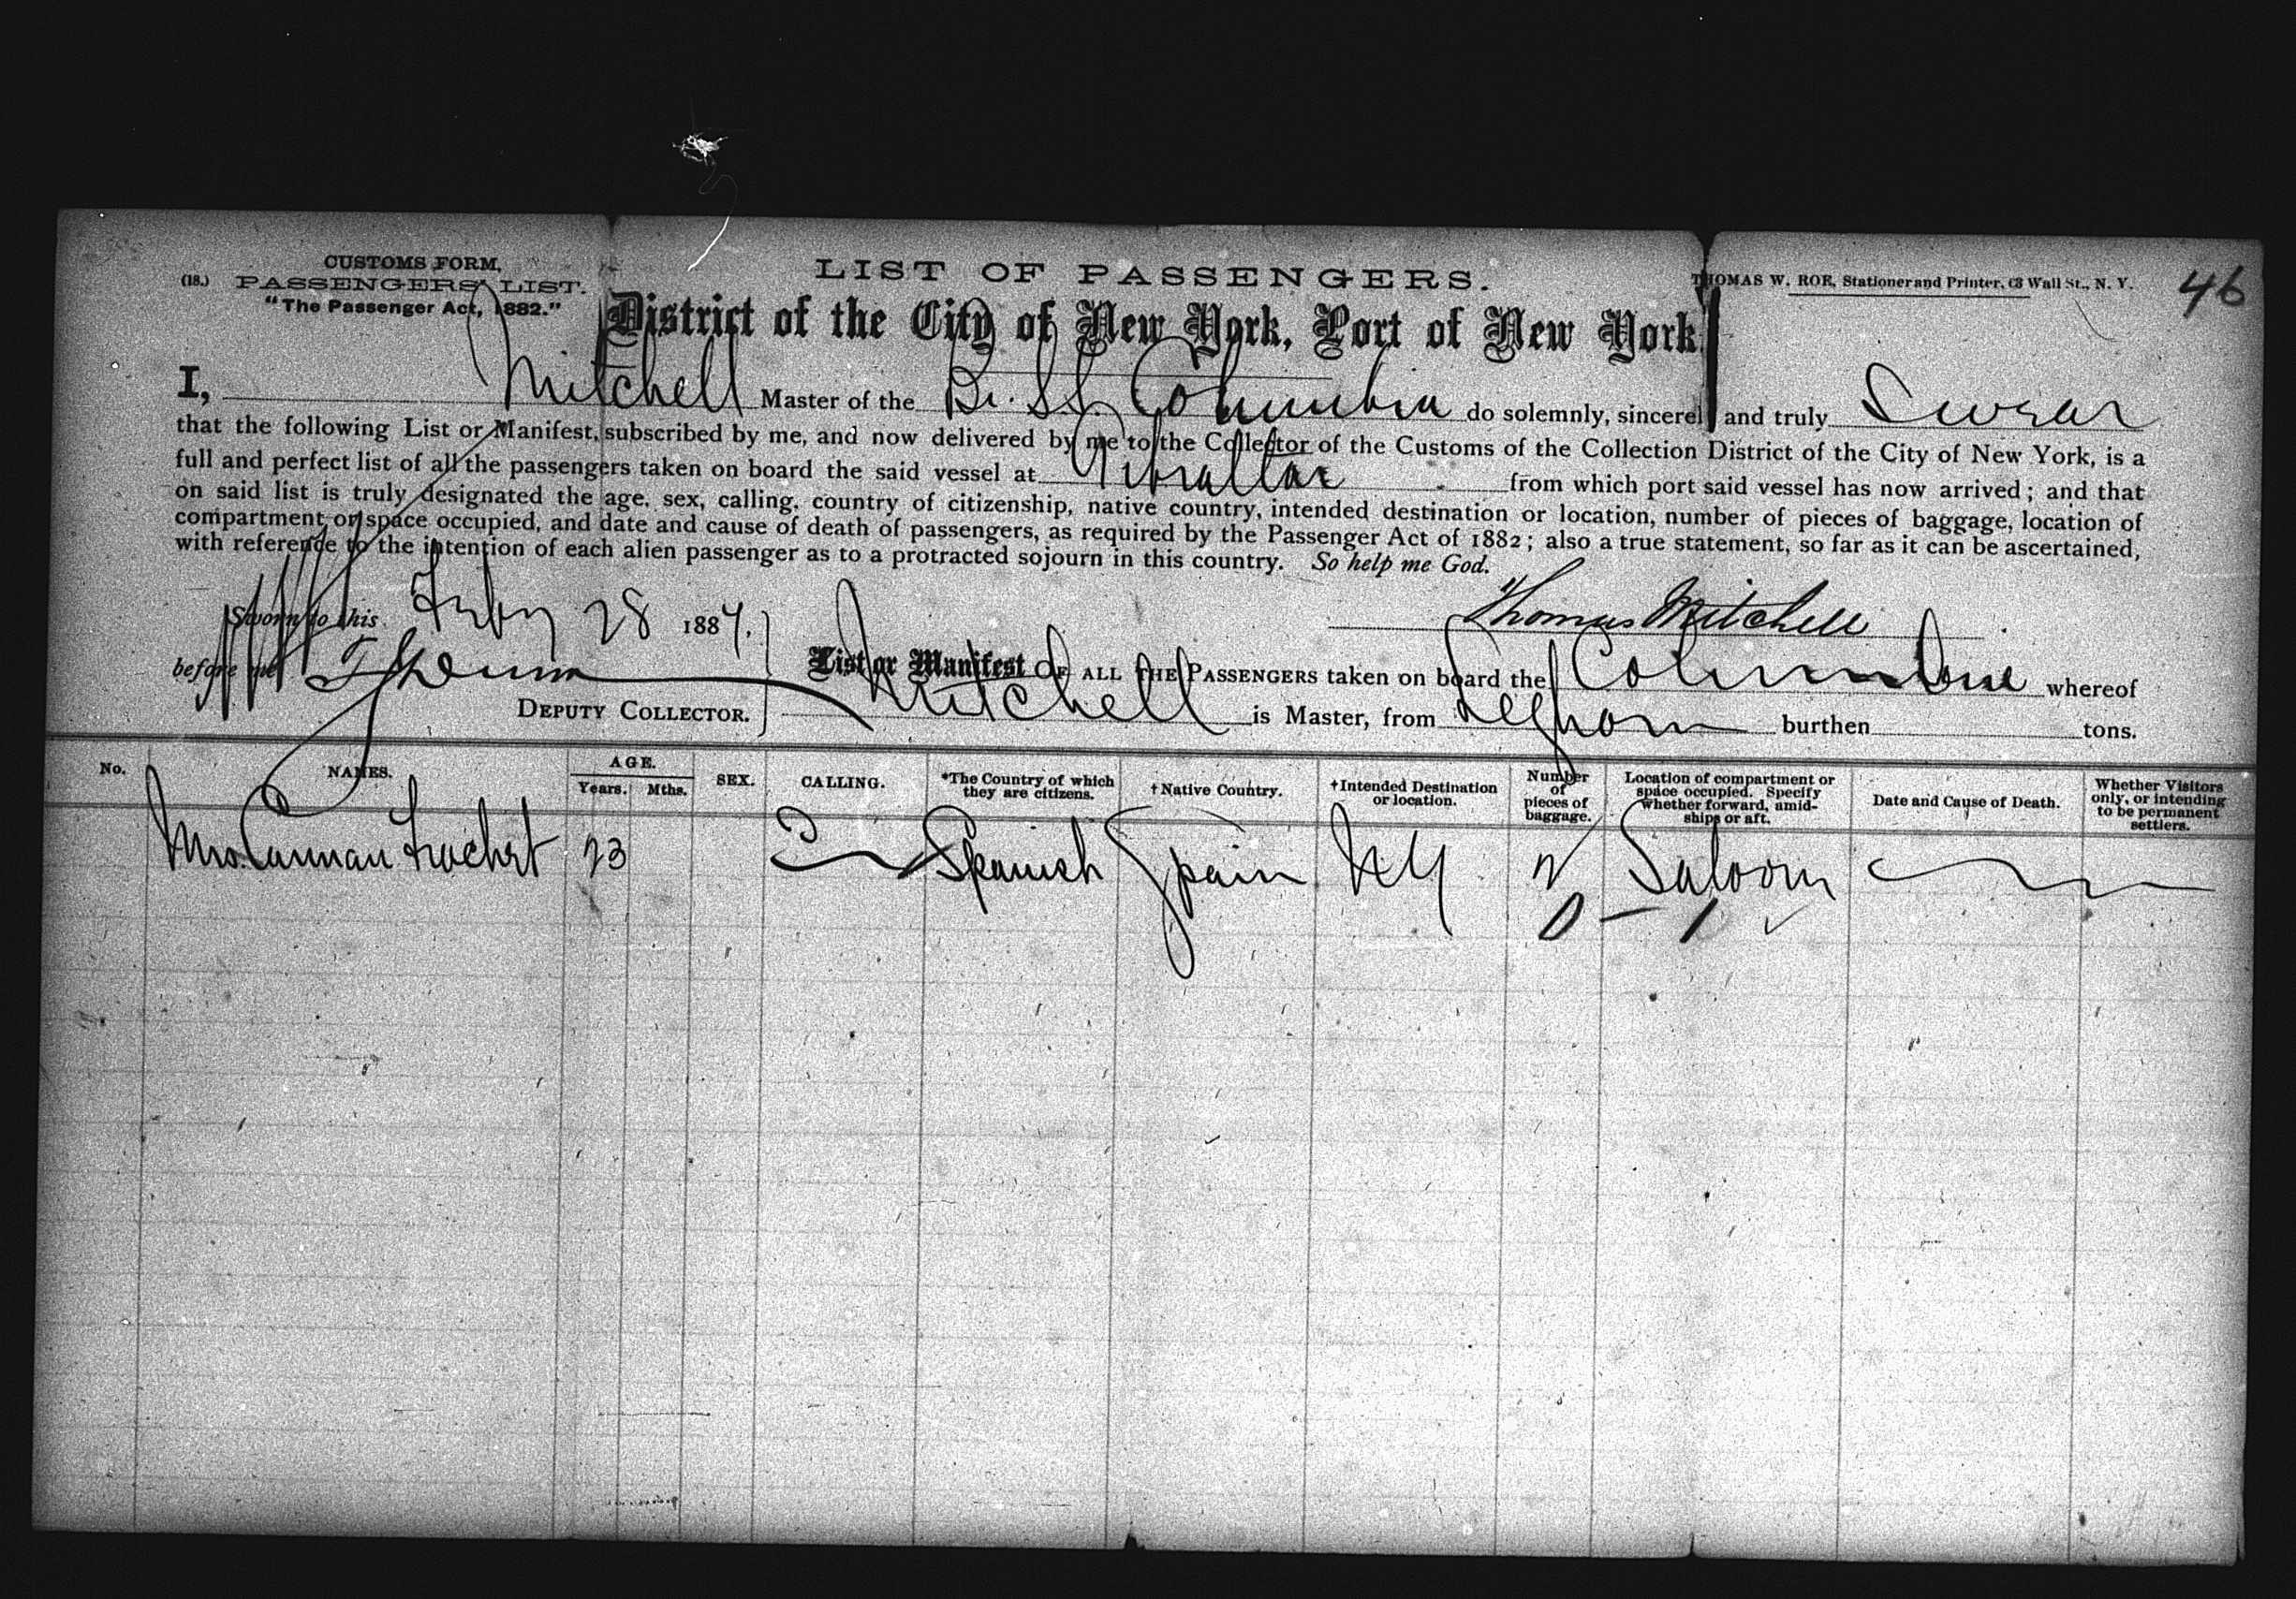 CUSTOMS FORM,
(18.) PASSENGERS' LIST.
"The Passenger Act, 1882."
LIST OF PASSENGERS.
THOMAS W. ROE, Stationer and Printer, 63 Wall St., N. Y.
46
District of the City of New York, Port of New York
I, Mitchell Master of the Br. SS. Columbia do solemnly, sincerel and truly Swear
that the following List or Manifest, subscribed by me, and now delivered by me to the Collector of the Customs of the Collection District of the City of New York, is a
full and perfect list of all the passengers taken on board the said vessel at Gibraltar from which port said vessel has now arrived; and that
on said list is truly designated the age, sex, calling, country of citizenship, native country, intended destination or location, number of pieces of baggage, location of
compartment or space occupied, and date and cause of death of passengers, as required by the Passenger Act of 1882; also a true statement, so far as it can be ascertained,
with reference to the intention of each alien passenger as to a protracted sojourn in this country. So help me God.
Sworn to this Feby 28 1887.
Thomas Mitchell
before me
DEPUTY COLLECTOR.
List or Manifest OF ALL THE PASSENGERS taken on board the Columbia whereof
Mitchell is Master, from Leghorn burthen tons.
No. NAMES. AGE. Years. Mths. SEX. CALLING. *The Country of which they are citizens. †Native Country. †Intended Destination or location. Number of pieces of baggage. Location of compartment or space occupied. Specify whether forward, amidships or aft. Date and Cause of Death. Whether Visitors only, or intending to be permanent settlers.
Mrs. Carman 23 Spanish Spain NY Saloon
0 - 1 ✓